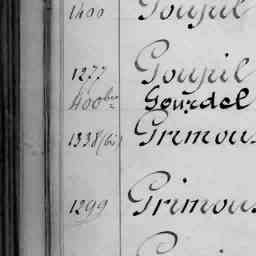 1400 Goupil
1277 Goupil
400 bis Gourdel
1338 (bis) Grimous
1299 Grimous